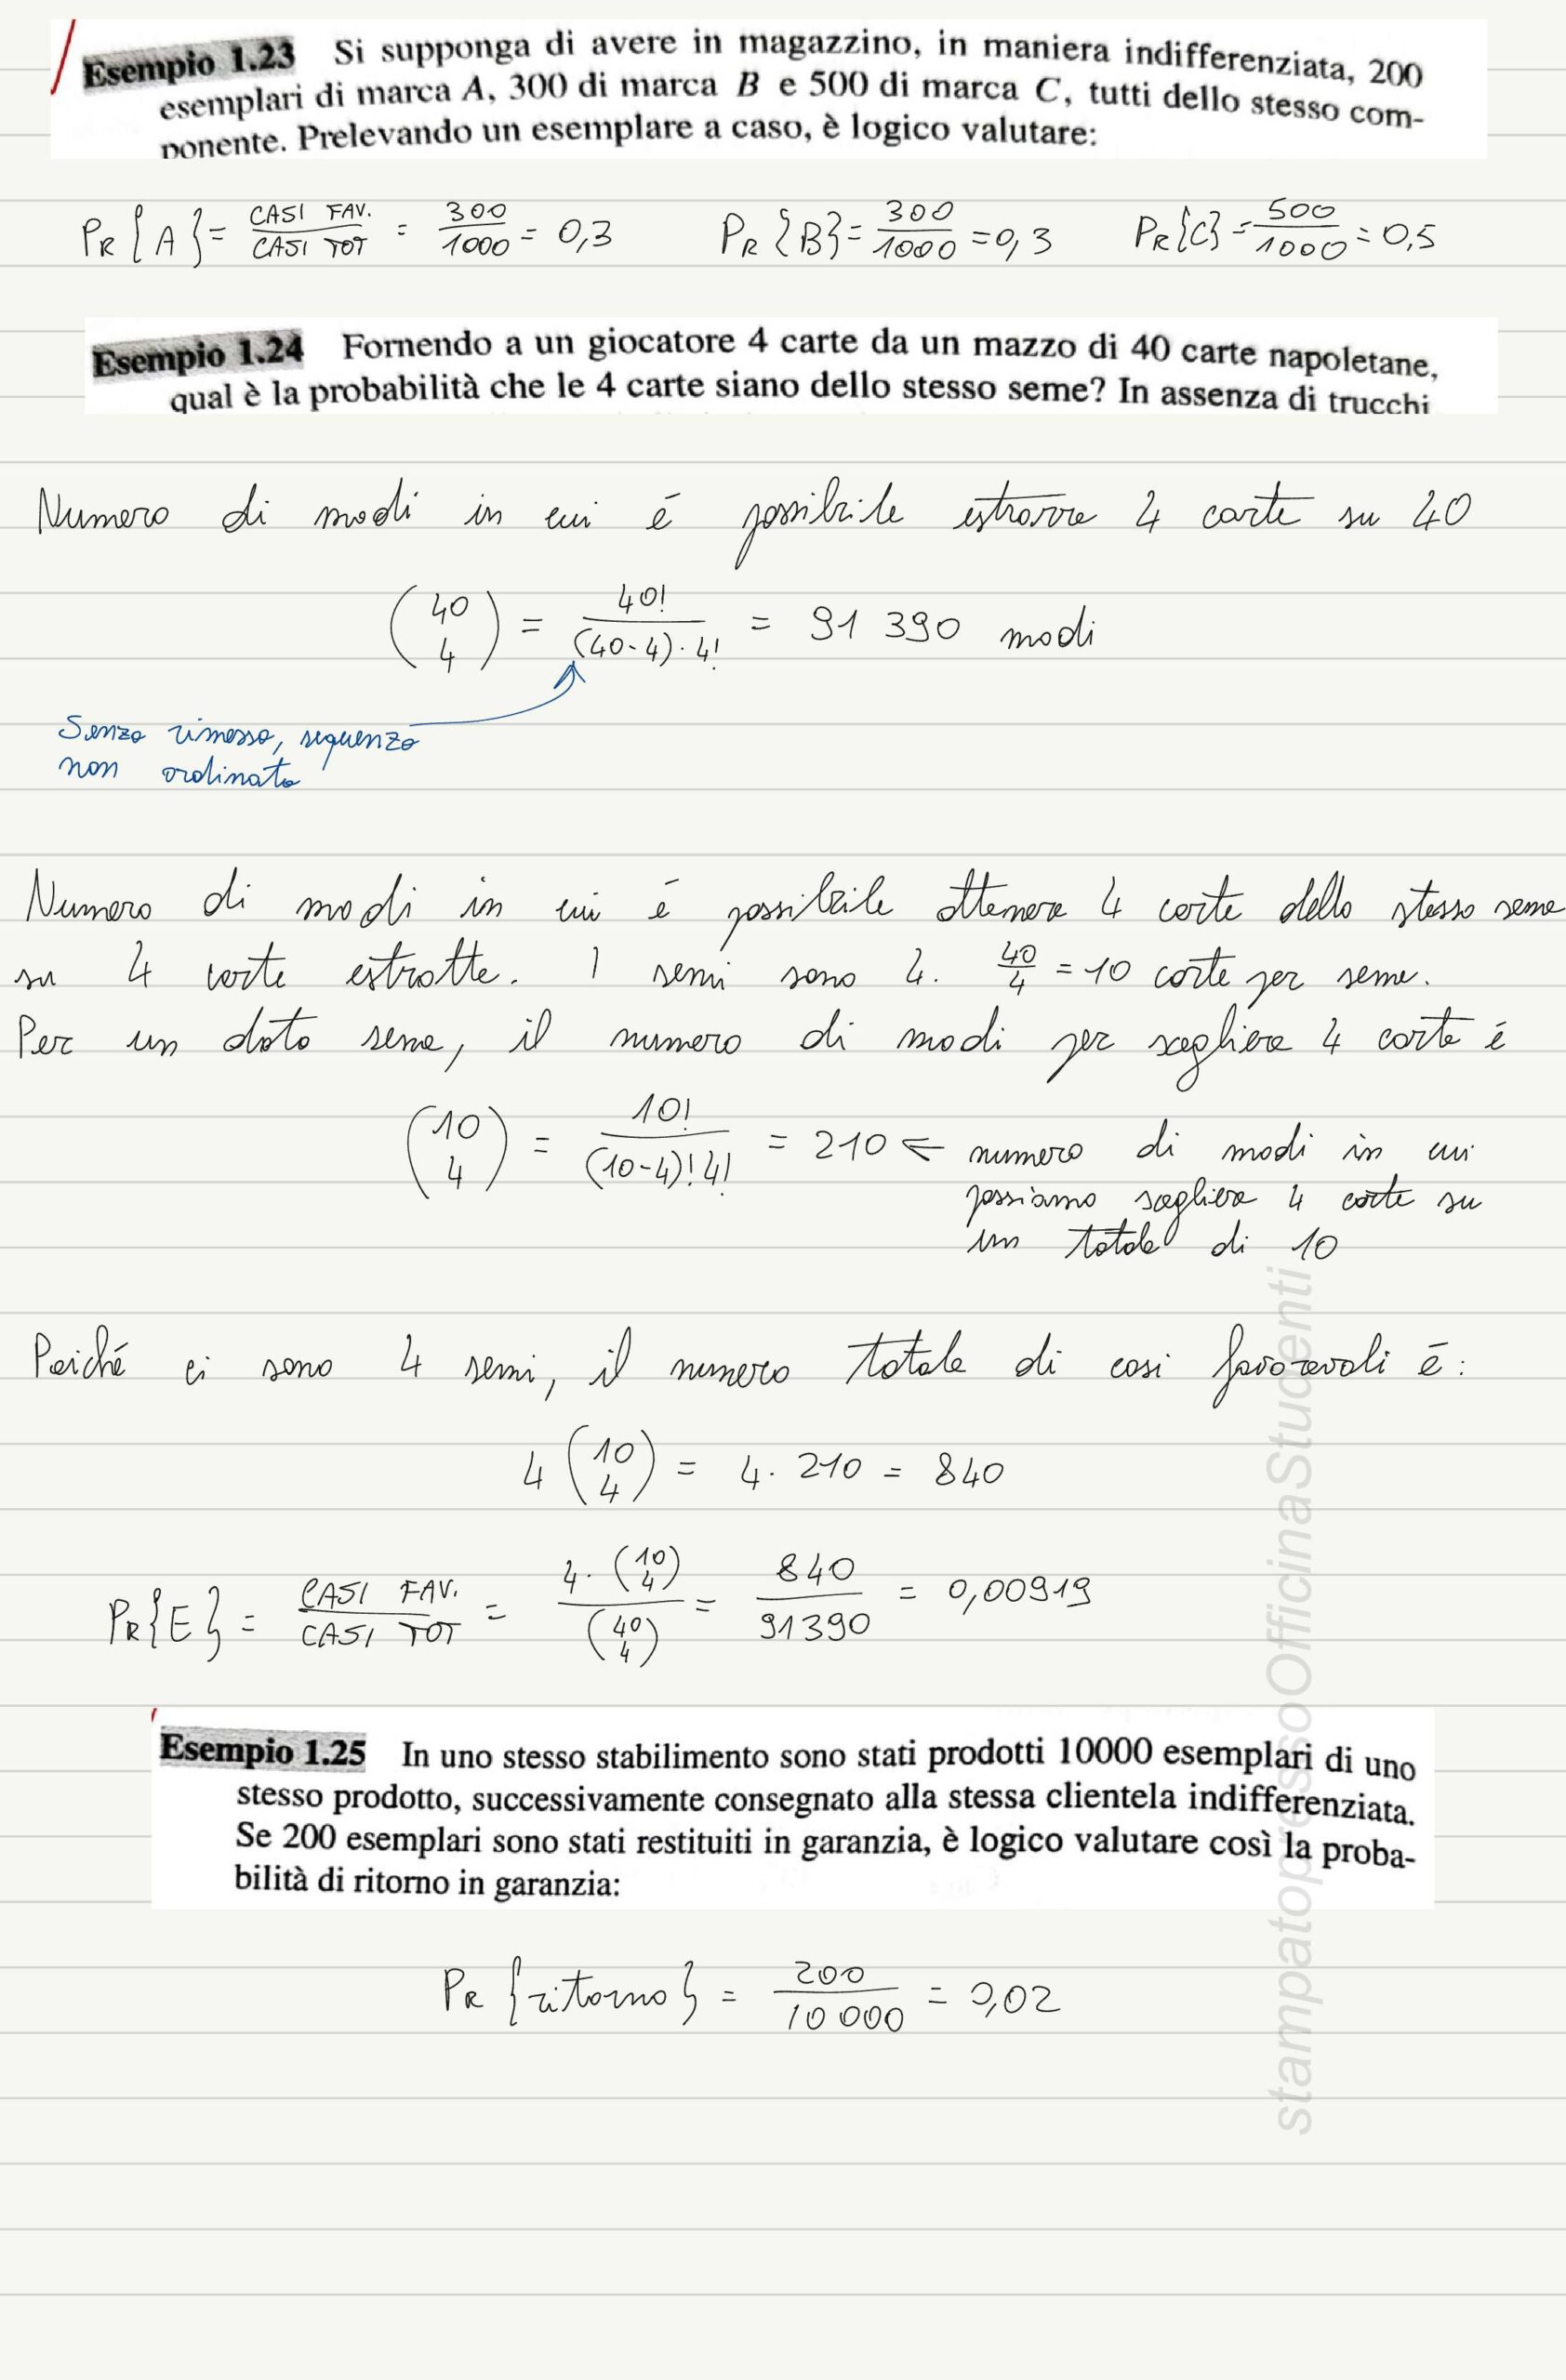 Esempio 1.23 Si supponga di avere in magazzino, in maniera indifferenziata, 200
esemplari di marca A, 300 di marca B e 500 di marca C, tutti dello stesso com-
ponente. Prelevando un esemplare a caso, è logico valutare:
PR{A} = CASI FAV. / CASI TOT = 300/1000 = 0,3 PR{B} = 300/1000 = 0,3 PR{C} = 500/1000 = 0,5
Esempio 1.24 Fornendo a un giocatore 4 carte da un mazzo di 40 carte napoletane,
qual è la probabilità che le 4 carte siano dello stesso seme? In assenza di trucchi
Numero di modi in cui é possibile estrarre 4 carte su 40
(40 4) = 40! / (40-4)·4! = 91 390 modi
Senza rimessa, sequenza
non ordinata
Numero di modi in cui é possibile ottenere 4 carte dello stesso seme
su 4 carte estratte. I semi sono 4. 40/4 = 10 carte per seme.
Per un dato seme, il numero di modi per scegliere 4 carte é
(10 4) = 10! / (10-4)! 4! = 210 ← numero di modi in cui
possiamo scegliere 4 carte su
un totale di 10
Poiché ci sono 4 semi, il numero totale di casi favorevoli é:
4 (10 4) = 4 · 210 = 840
PR{E} = CASI FAV. / CASI TOT = 4·(10 4) / (40 4) = 840/91390 = 0,00919
Esempio 1.25 In uno stesso stabilimento sono stati prodotti 10000 esemplari di uno
stesso prodotto, successivamente consegnato alla stessa clientela indifferenziata.
Se 200 esemplari sono stati restituiti in garanzia, è logico valutare così la proba-
bilità di ritorno in garanzia:
PR {ritorno} = 200/10 000 = 0,02
stampatopressoOfficinaStudenti